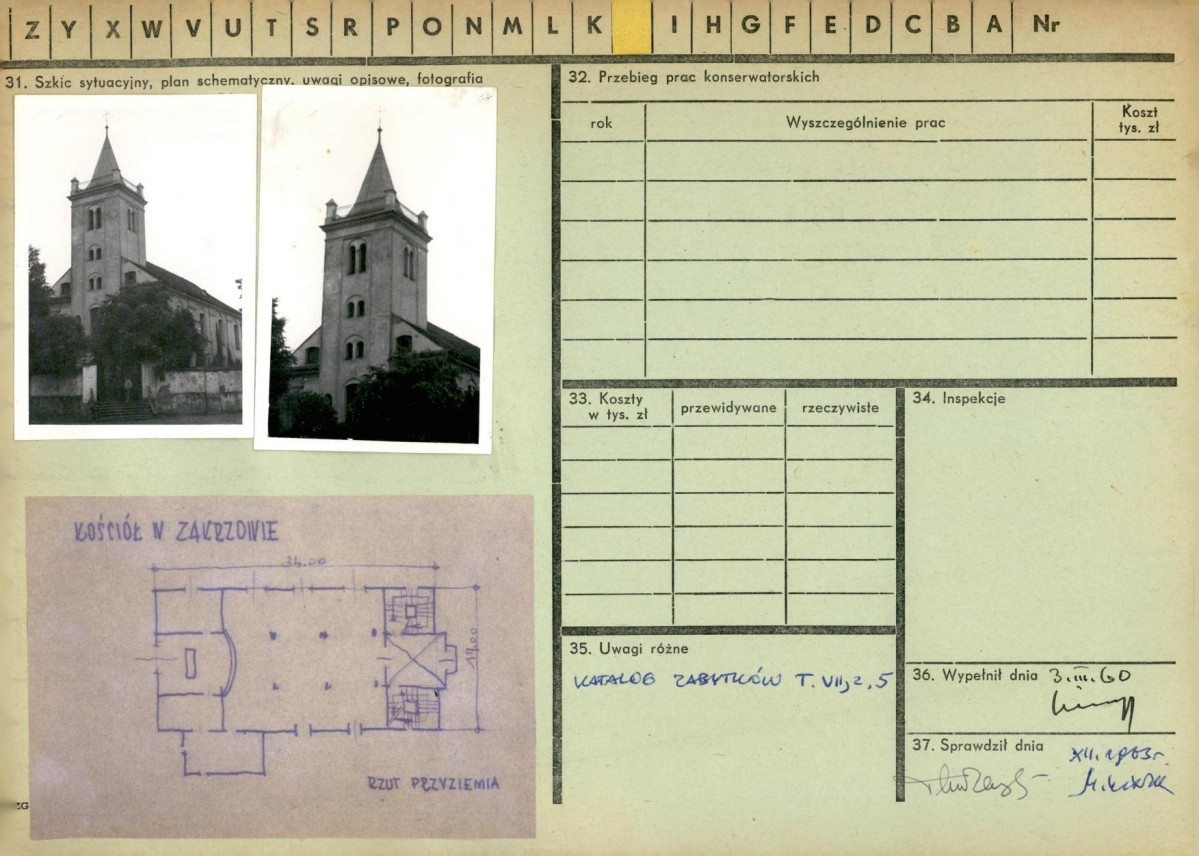 Z Y X W V U T S R P O N M L K I H G F E D C B A Nr
31. Szkic sytuacyjny, plan schematyczny, uwagi opisowe, fotografia
KOŚCIÓŁ W ZAKRZOWIE
34.00
17.00
RZUT PRZYZIEMIA
ZG
32. Przebieg prac konserwatorskich
rok
Wyszczególnienie prac
Koszt
tys. zł
33. Koszty
w tys. zł
przewidywane
rzeczywiste
34. Inspekcje
35. Uwagi różne
KATALOG ZABYTKÓW T. VII, z, 5
36. Wypełnił dnia 3.III.60
37. Sprawdził dnia
XII. 1963r.